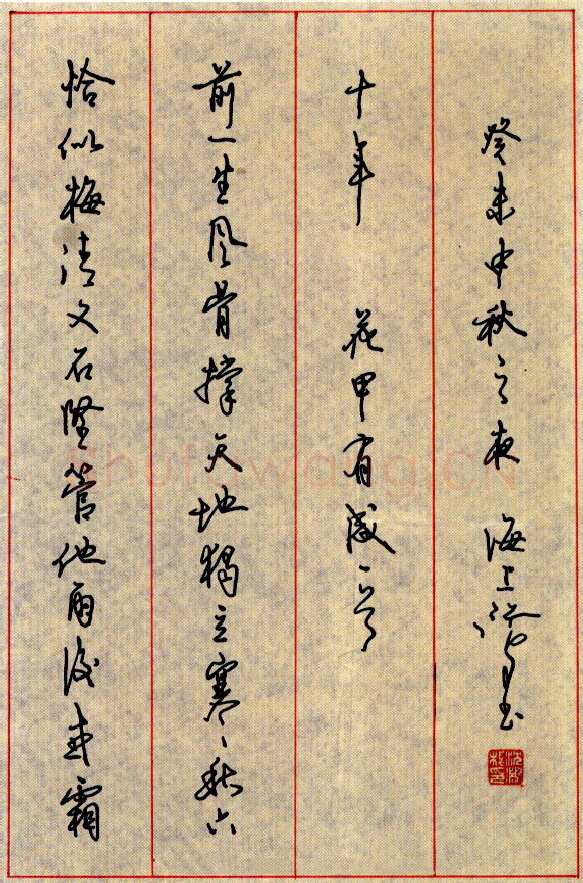 恰似梅清又石堅管他雨後或霜
前一生风骨撑天地獨立寒秋六
十年 花甲有感
癸未中秋之夜 海上
Shufawang.CN